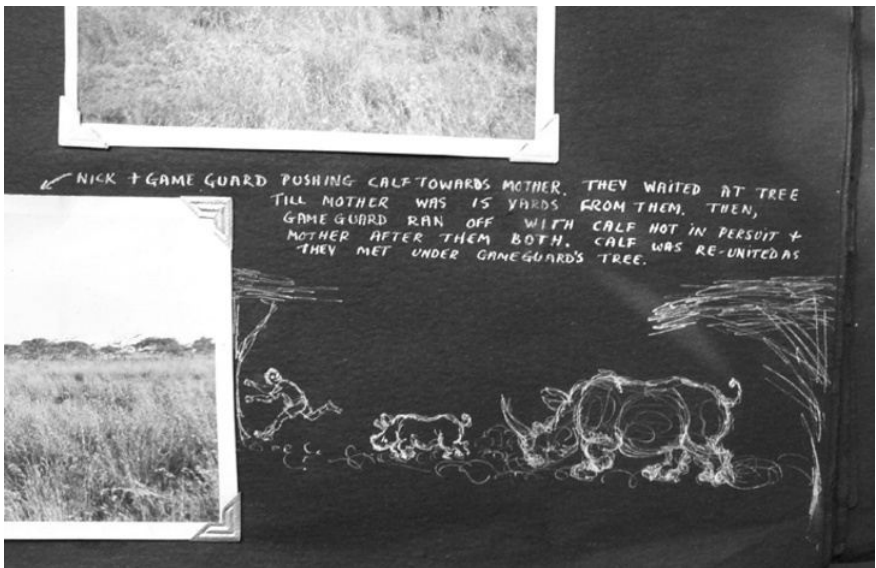 NICK + GAME GUARD PUSHING CALF TOWARDS MOTHER. THEY WAITED AT TREE
TILL MOTHER WAS 15 YARDS FROM THEM. THEN,
GAME GUARD RAN OFF WITH CALF HOT IN PERSUIT +
MOTHER AFTER THEM BOTH. CALF WAS RE-UNITED AS
THEY MET UNDER GAMEGUARD'S TREE.